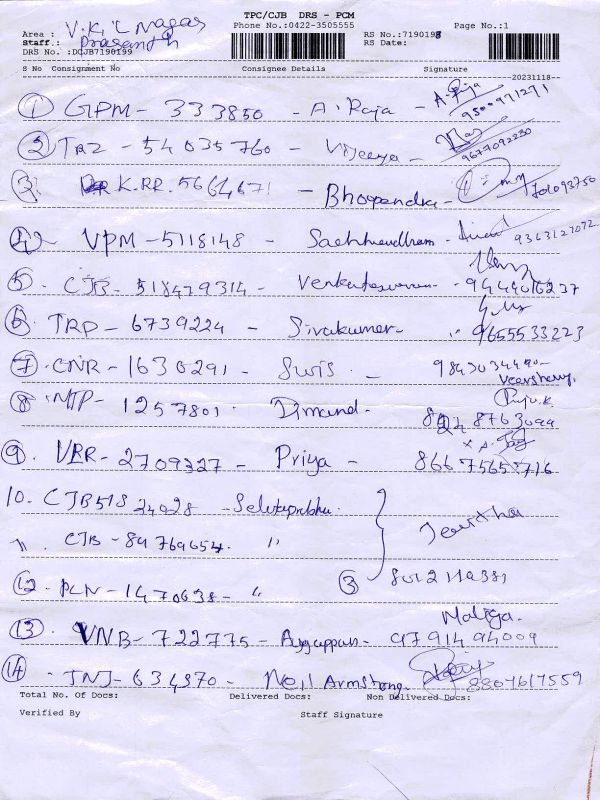 TPC/CJB DRS - PCM
Phone No.:0422-3505555 Page No.:1
Area : V.K.L Nagar RS No.:7190198
Staff.: Prasanth RS Date:
DRS No. :DCJB7190199
S No Consignment No Consignee Details Signature
20231118
1 GPM - 333850 - A. Raja - A. Raja
9500971271
2 TRZ - 54035760 - Vijeeya - Raj
9677092230
3. K.RR. 5664671 - Bhoopendra -
4 VPM - 5118148 - 9363127072
5. CJB - 518479314 - Venkateswaran - 9444016237
6. TRP - 6739224 - Sivakumar - 9655533223
7. CNR - 1630291 - Swis - 9843034490
8 MTP - 1257801. Dimand.
9. VRR - 2709327 - Priya - 8667565716
10. CJB518 24028 - Selvaprabhu.
11. CJB - 84769654. "
12. PLN - 1470638 - " 3
Maliga.
13 VNB - 722775 - Ayyappan - 9791494009
14. TNJ - 634870 - Neil Armstrong 8807617559
Total No. Of Docs: Delivered Docs: Non Delivered Docs:
Verified By Staff Signature